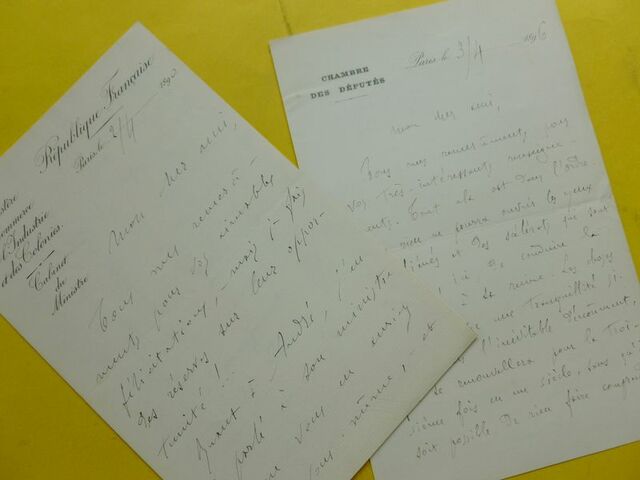 République Française
Paris, le 2/4 189
Commerce
l'Industrie
et des Colonies.
Cabinet
du
Ministre
Mon cher ami,
Tous mes remercî-
ments pour vos aimables
félicitations, mais je fais
des réserves sur leur oppor-
tunité!
Quant à André, j'ai
parlé à son ministre
vous en
vous-même, et
CHAMBRE
DES DÉPUTÉS
Paris, le 3/4 1896
Mon cher ami,
Tous mes remerciements pour
vos très-intéressants renseigne-
ments. Tout cela est dans l'ordre.
rien ne pourra ouvrir les yeux
et des scélérats qui sont
conduire la
à sa ruine. Les choses
une tranquillité
l'inévitable dénouement.
se renouvellera pour la troi-
sième fois en un siècle, sans qu'il
soit possible de rien faire